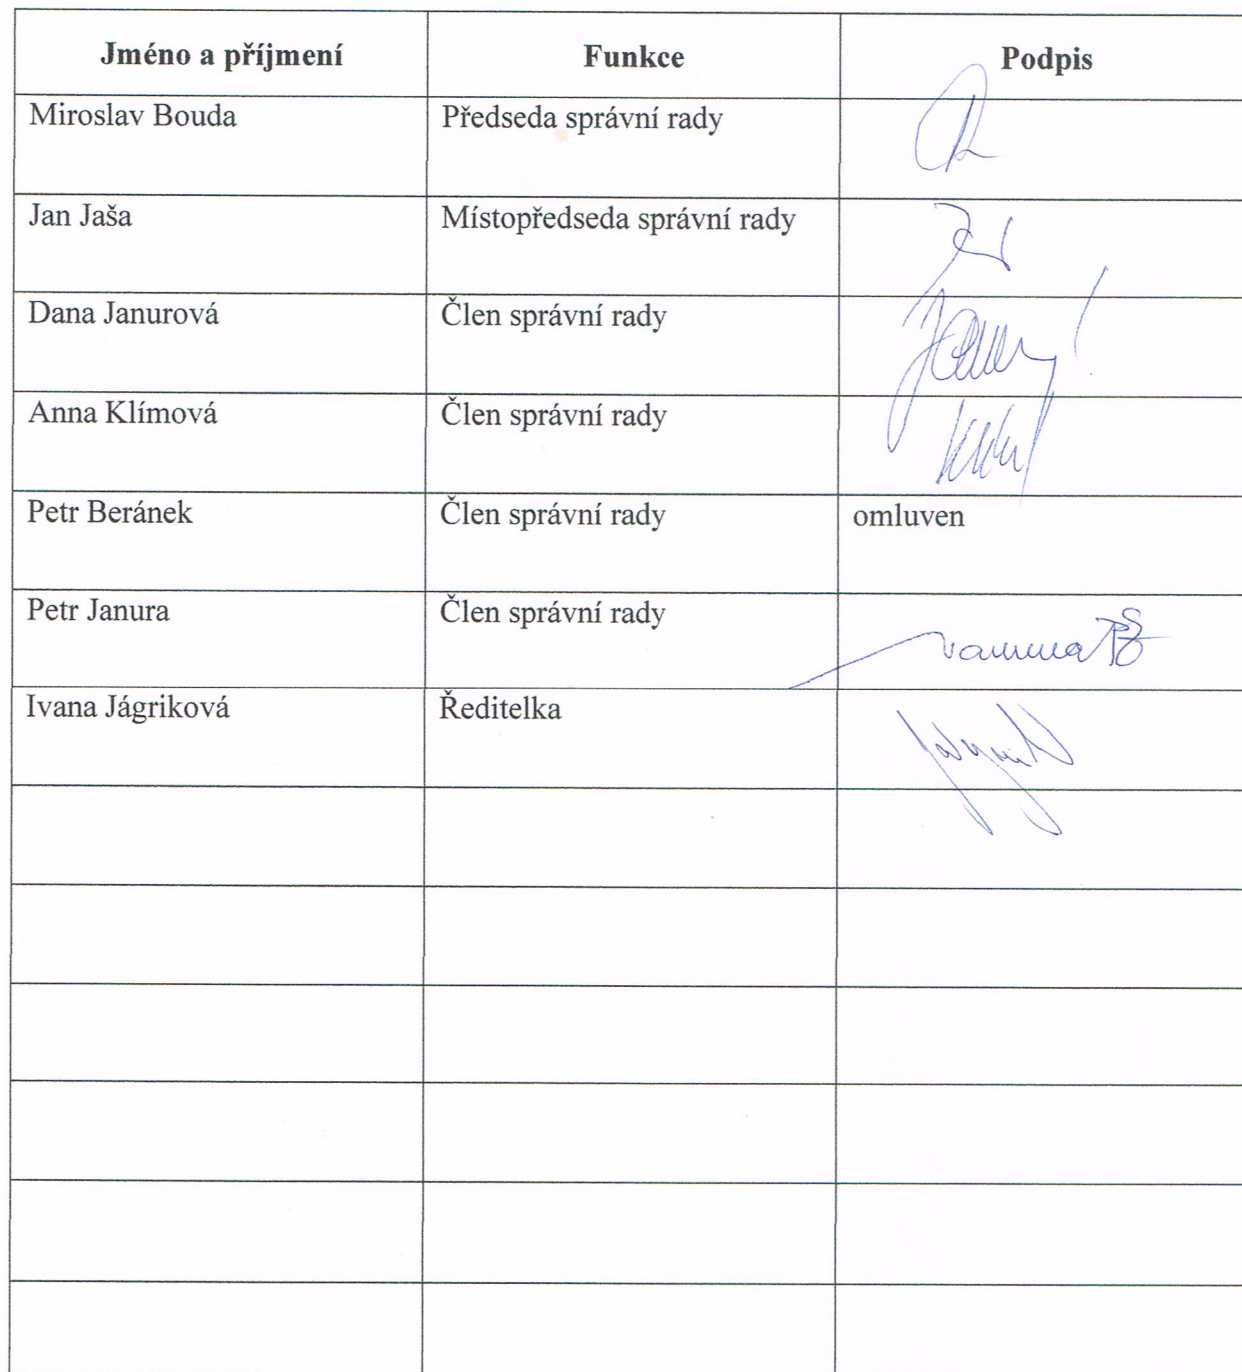 Jméno a příjmení Funkce Podpis
Miroslav Bouda Předseda správní rady
Jan Jaša Místopředseda správní rady
Dana Janurová Člen správní rady
Anna Klímová Člen správní rady
Petr Beránek Člen správní rady omluven
Petr Janura Člen správní rady
Ivana Jágriková Ředitelka